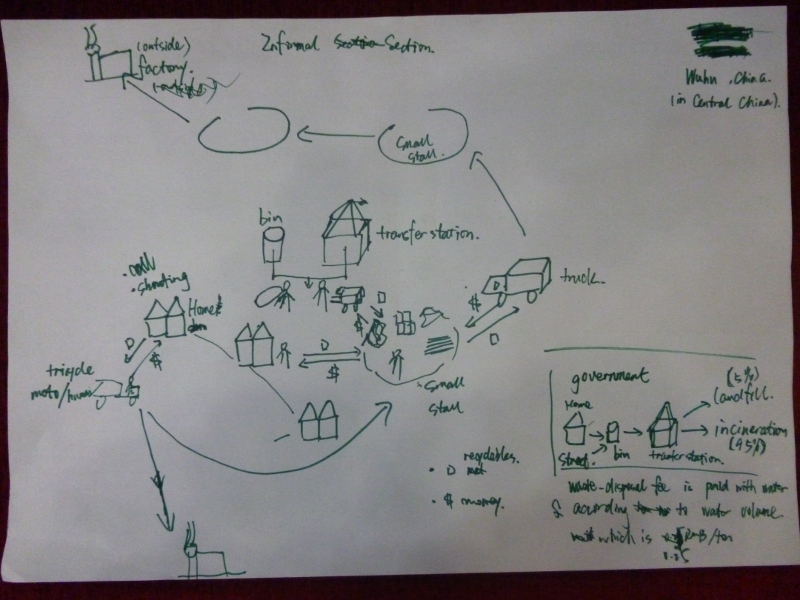 Informal Section Section.
(outside)
factory.
Wuhn . China.
(in Central China).
small
stall.
bin
transfer station.
. call
. shouting
Home
truck.
D
$
D
$
D
$
D
$
D
tricycle
moto/human
small
stall
. D recyclables.
. $ money.
government
Home
street.
bin
tranfer station.
(5%)
landfill.
incineration
(95%)
waste-disposal fee is paid with water
& according to water volume.
which is RMB/ton